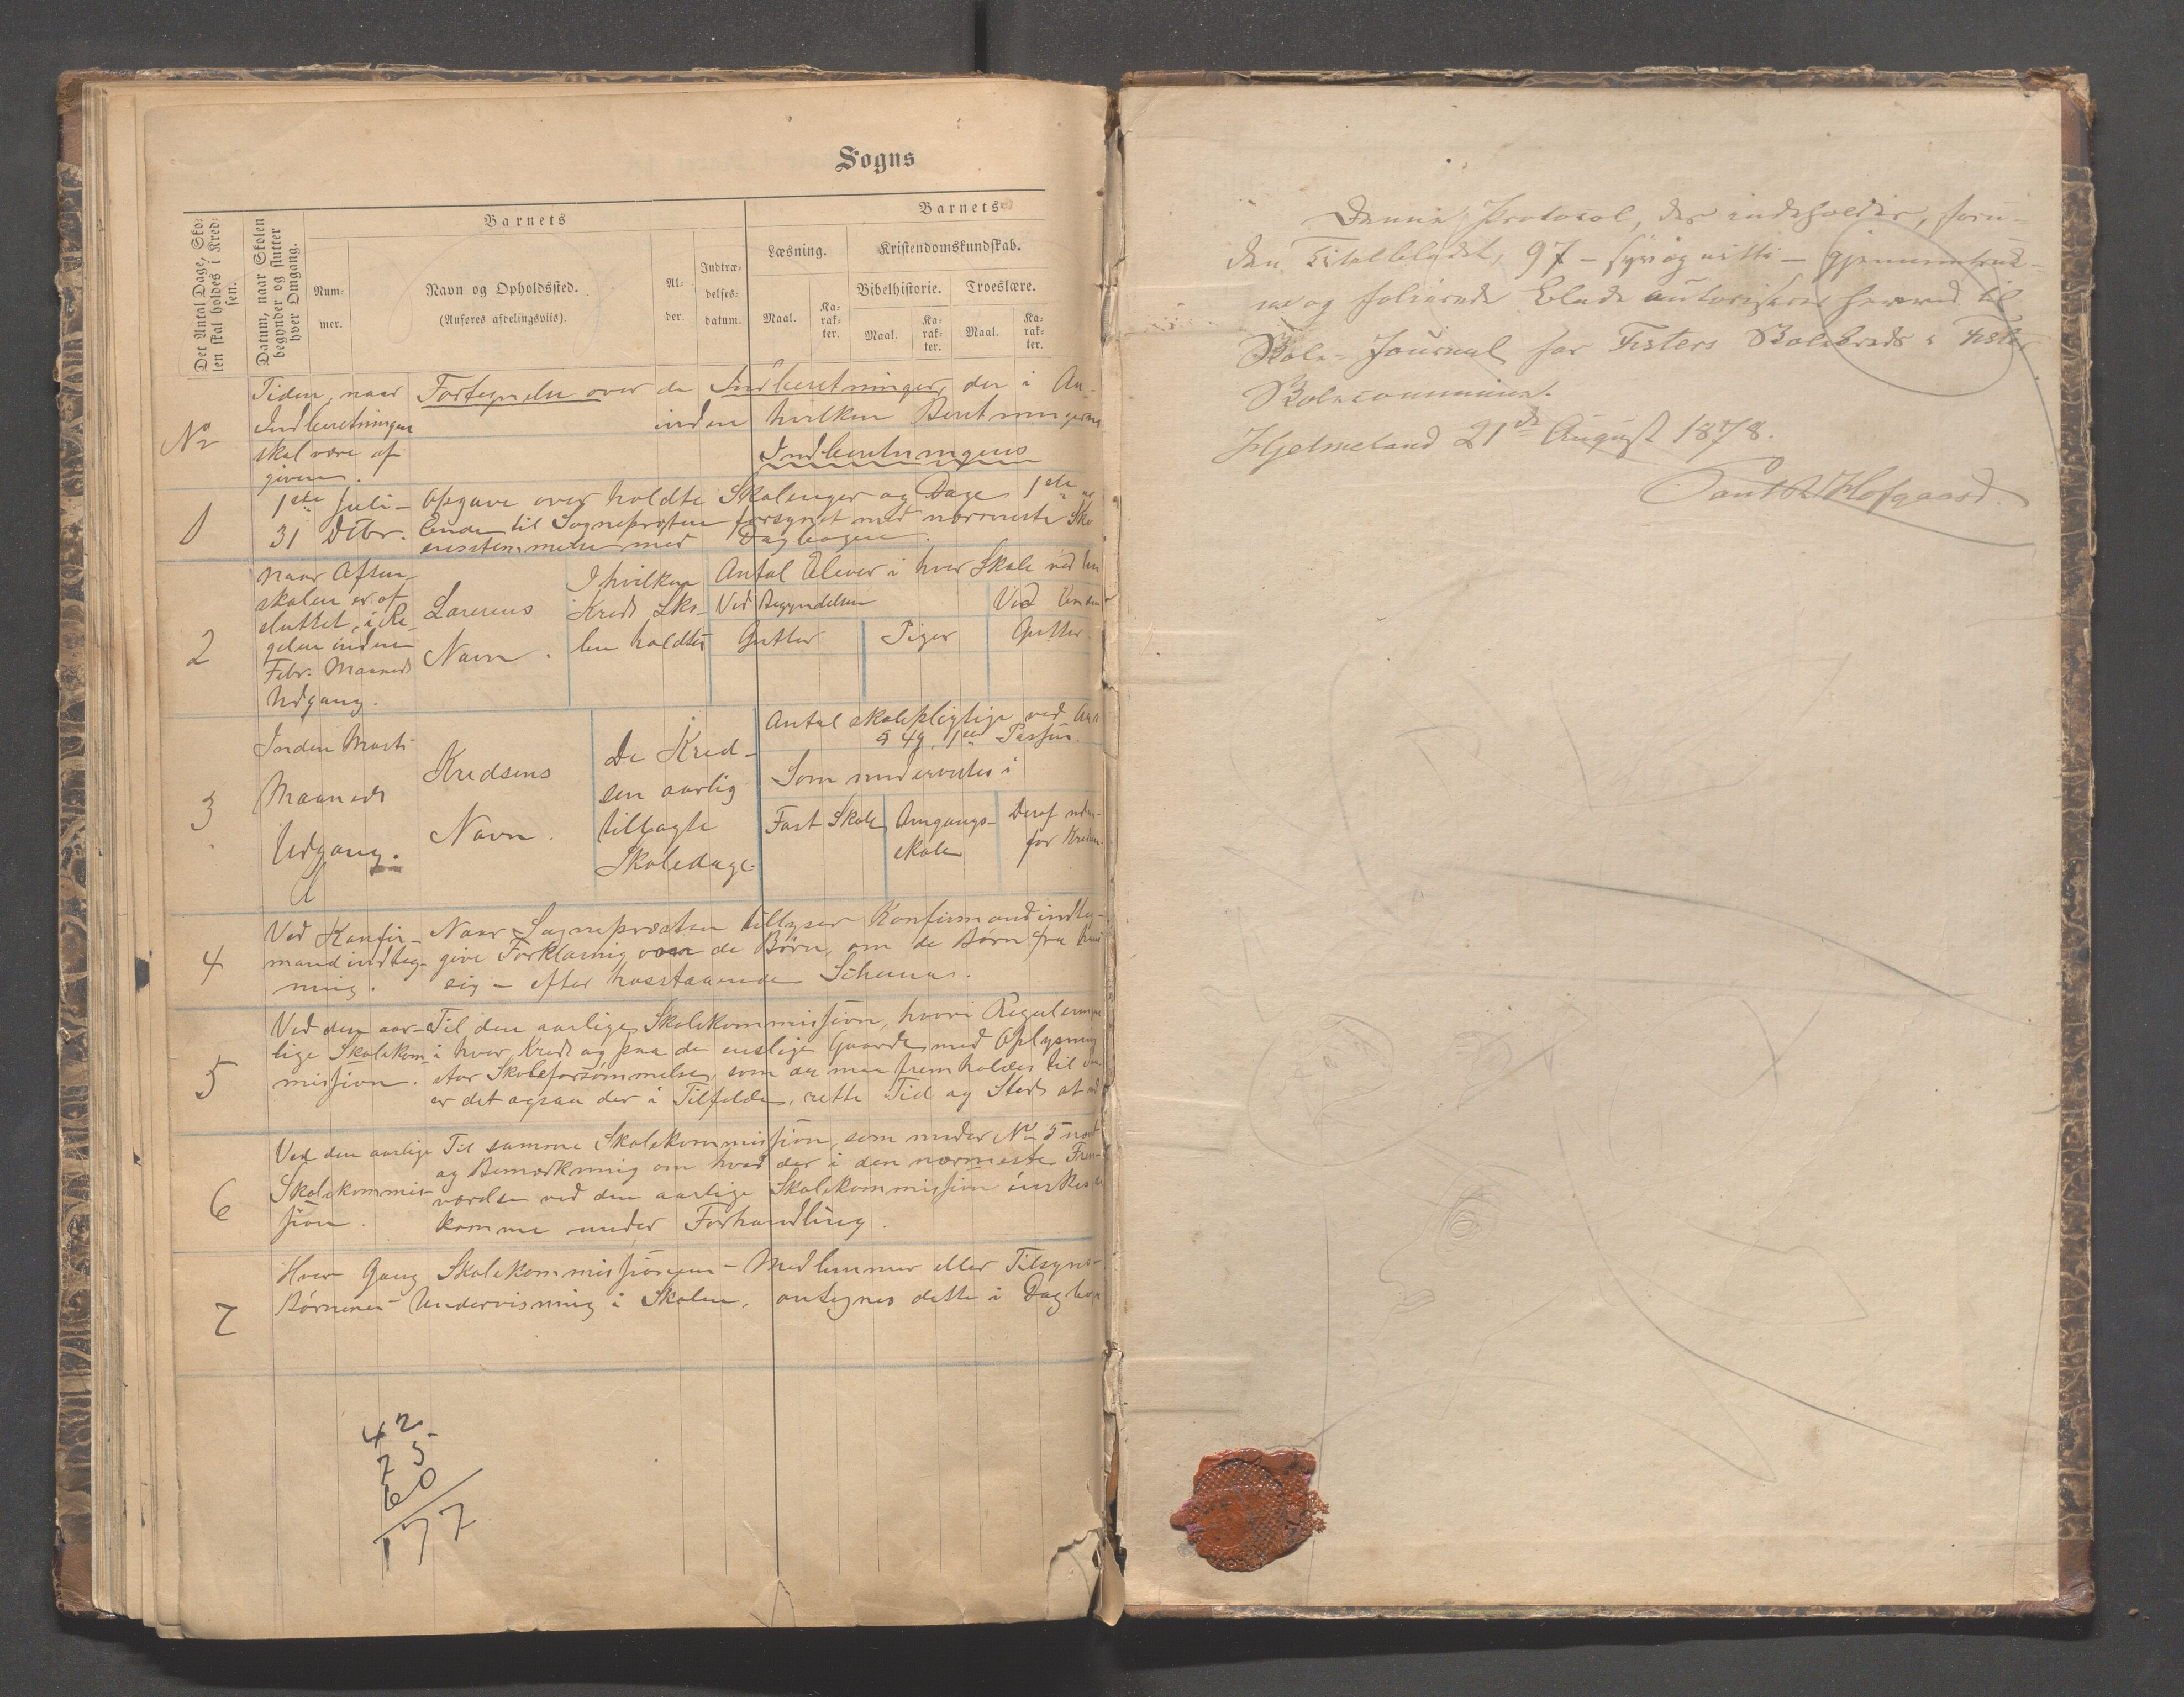 Sogns
Det Antal Dage, Sko-
len skal holdes i Kred-
sen.
Datum, naar Skolen
begynder og slutter
hver Omgang.
Barnets
Num-
mer.
Navn og Opholdssted.
(Anføres afdelingsviis).
Al-
der.
Indtræ-
delses-
datum.
Barnets
Læsning.
Kristendomskundskab.
Maal.
Ka-
rak-
ter.
Bibelhistorie.
Troeslære.
Maal.
Ka-
rak-
ter.
Maal.
Ka-
rak-
ter.
No
Tiden, naar
Indberetningen
skal være af
given.
Fortegnelse over de Indberetninger, der i An-
inden hvilken Beretningerne
Indberetningens
1
1ste Juli-
31 Dcbr.
Opgave over holdte Skoleuger og Dage 1ste
Ende til Sognepræsten forsynet med nærmeste Sko
med Dagbogen.
2
Naar Aften-
skolen er af
sluttet, i Re-
gelen inden
Febr. Maaneds
Udgang.
Lærerens
Navn.
I hvilken
Kreds Sko-
len holdtes
Antal Elever i hver Skole ved
Ved Begyndelsen
Ved Enden
Gutter
Piger
Gutter
3
Inden Marts
Maaneds
Udgang.
Kredsens
Navn.
De Kred-
sen aarlig
tillagte
Skoledage.
Antal skolepligtige ved
§ 49, 1ste Passus.
Som undervistes i
Fast Skole
Omgangs-
skole
Deraf uden-
for Kredsen
4
Ved Konfir-
mandindteg-
ning.
Naar Sognepræsten tillyser Konfirmandindteg-
give Forklaring over de Børn, om de Børn fra
sig - efter hosstaaende Schema.
5
Ved den aar-
lige Skolekom-
mission.
Til den aarlige Skolekommission, hvori Reguleringen
i hver Kreds og paa de enslige Gaarde med Oplysning
stor Skoleforsømmelse, som da maa fremholdes til
er det ogsaa der i Tilfelde, rette Tid og Sted at
6
Ved den aarlige
Skolekommis-
sion.
Til samme Skolekommission, som under No 5
og Bemærkning om hvad der i den nærmeste Frem-
værelse ved den aarlige Skolekommission ønskes
komme under Forhandling.
7
Hver Gang Skolekommissionen- Medlemmer eller Tilsyns-
Børnenes Undervisning i Skolen, antegnes dette i Dagbog
42
75
60
177
Denne Protocol, der indeholder, foru-
den Titelbladet, 97 - syv og nitti - gjennemtruk-
ne og folierede Blade autoriseres herved til
Skole-Journal for Fisters Skolekreds i Fister
Skolecommune.
Hjelmeland 21de August 1878.
Hofgaard